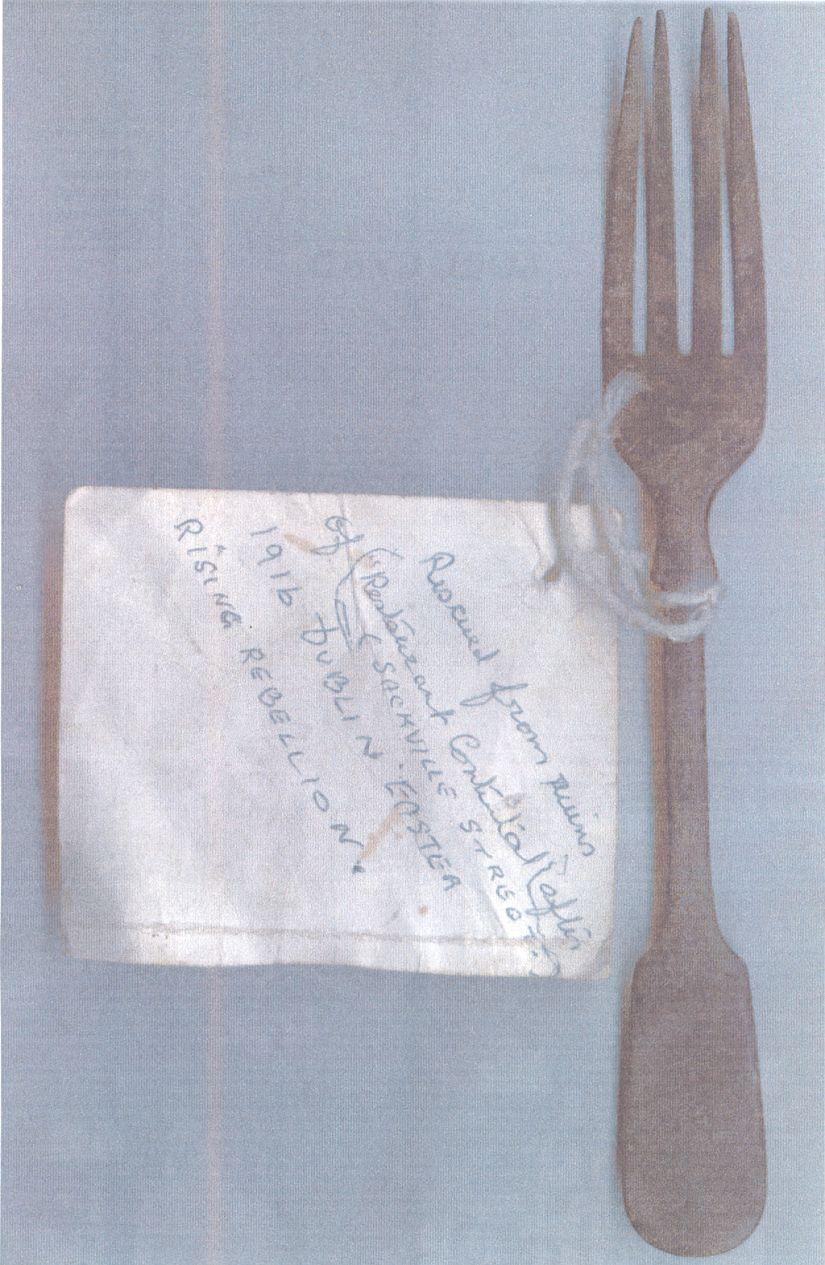 Rescued from ruins
of (Restaurant Continental) after
(SACKVILLE STREET)
1916 DUBLIN EASTER
RISING REBELLION.